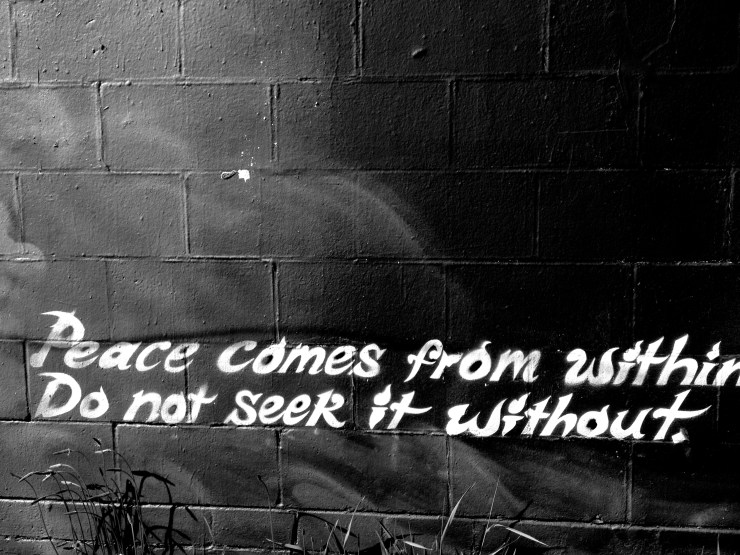 Peace comes from within
Do not seek it without.